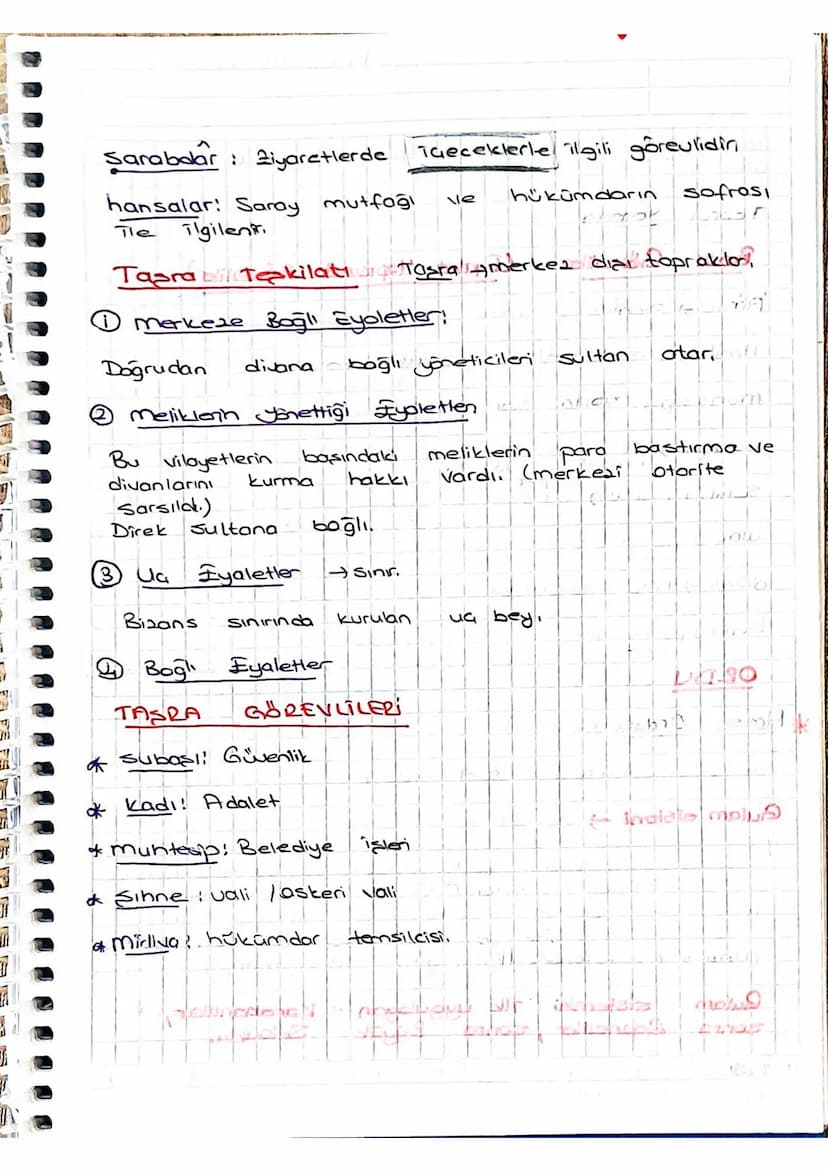 Sarabdâr : Ziyaretlerde içeceklerle ilgili görevlidir.
hansalar: Saray mutfağı ve hükümdarın sofrası
ile ilgilenir.
Taşra Teşkilatı Taşra → merkez dışı topraklar.
① merkeze Bağlı Eyaletler:
Doğrudan divana bağlı yöneticileri sultan atar.
② meliklerin yönettiği Eyaletler
Bu vilayetlerin başındaki meliklerin para bastırma ve
divanlarını kurma hakkı vardı. (merkezi otorite
sarsıldı.)
Direk sultana bağlı.
③ Uç Eyaletler → sınır.
Bizans sınırında kurulan uç bey.
④ Bağlı Eyaletler
TAŞRA GÖREVLİLERİ
* subaşı: Güvenlik
* Kadı: Adalet
* muhtesip: Belediye işleri
* Şıhne : vali / askeri vali
* mirliva: hükümdar temsilcisi.